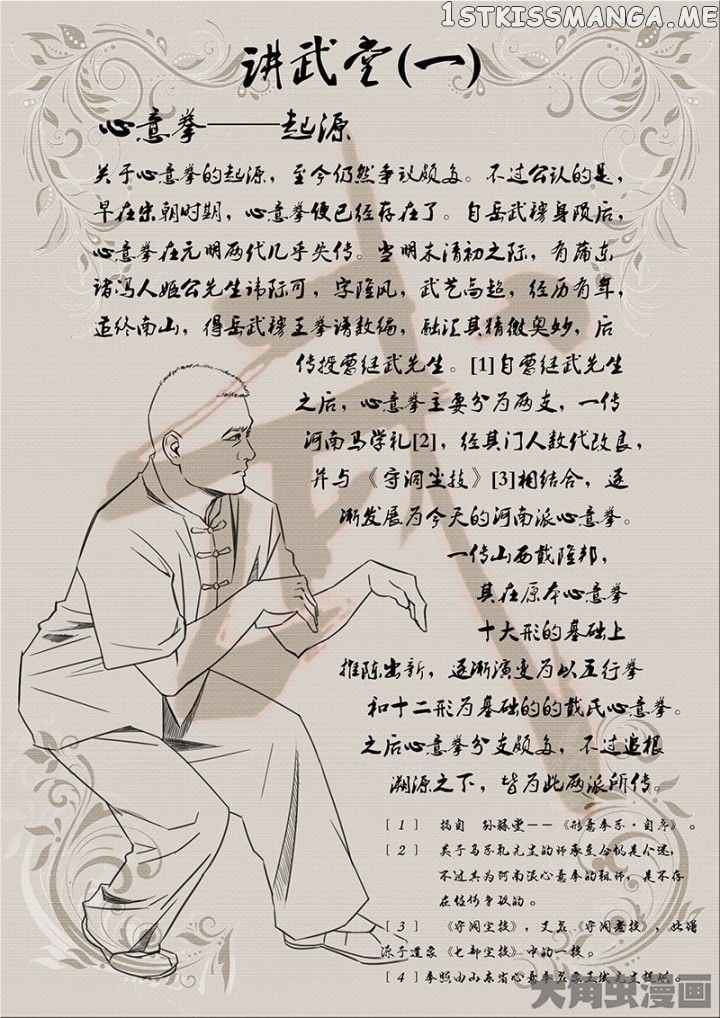 1STKISSMANGA.ME
讲武堂(一)
心意拳——起源
关于心意拳的起源，至今仍然争议颇多。不过公认的是，
早在宋朝时期，心意拳便已经存在了。自岳武穆身殁后，
心意拳在元明两代几乎失传。当明末清初之际，有蒲东
诸冯人姬公先生讳际可，字隆风，武艺高超，经历有年，
适终南山，得岳武穆王拳谱数编，融汇其精微奥妙，后
传授曹继武先生。[1]自曹继武先生
之后，心意拳主要分为两支，一传
河南马学礼[2]，经其门人数代改良，
并与《守洞尘技》[3]相结合，逐
渐发展为今天的河南派心意拳。
一传山西戴隆邦，
其在原本心意拳
十大形的基础上
推陈出新，逐渐演变为以五行拳
和十二形为基础的的戴氏心意拳。
之后心意拳分支颇多，不过追根
溯源之下，皆为此两派所传。
[1] 摘自 孙禄堂——《形意拳学·自序》。
[2] 关于马学礼先生的师承至今仍是个迷，
不过其为河南派心意拳的祖师，是不存
在任何争议的。
[3] 《守洞尘技》，又名《守洞老技》，此谱
派于道家《七部尘技》中的一技。
[4] 拳照由山东省心意拳名家王
大角虫漫画